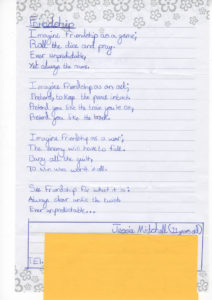 Friendship
Imagine Friendship as a game;
Roll the dice and pray.
Ever unpredictable,
Yet always the same.
Imagine Friendship as an act;
Pretend, to keep the peace intact.
Pretend you like the train you're on,
Pretend you like the book.
Imagine Friendship as a war;
The enemy will have to fall.
Carry all the guilt,
To win who wants it all.
See Friendship for what it is:
Always clear under the twists
Ever unpredictable...
Jessica Mitchell (11 years old)